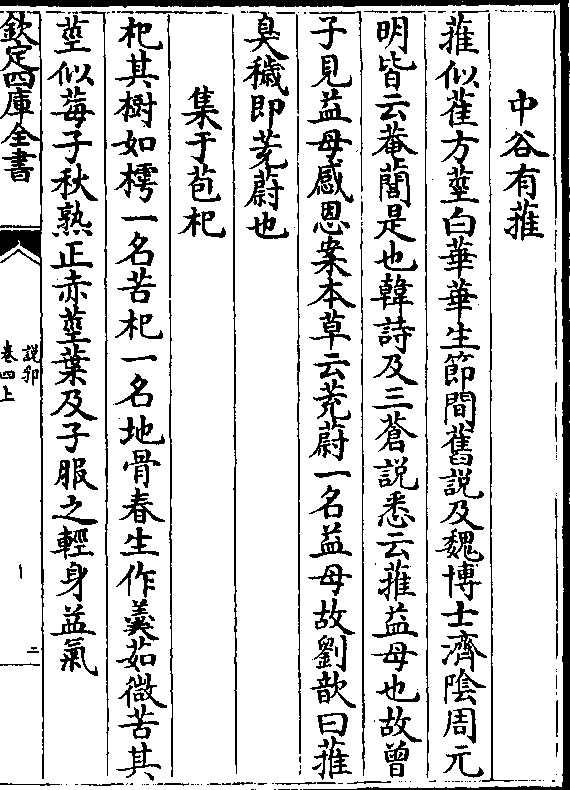 中谷有蓷
蓷似萑方莖白華華生節間舊説及魏博士濟隂周元
明皆云菴䕡是也韓詩及三蒼説悉云蓷益母也故曾
子見益母感恩案本草云茺蔚一名益母故劉歆曰蓷
臭穢即茺蔚也
集于苞杞
杞其樹如樗一名苦杞一名地骨春生作羮茹微苦其
莖似莓子秋熟正赤莖葉及子服之輕身益氣
欽定四庫全書
説郛
卷四上
二